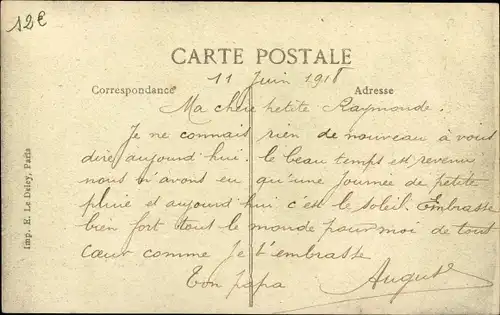 12€
CARTE POSTALE
11 Juin 1918
Correspondance
Adresse
Ma chere petite Raymonde.
Je ne connais rien de nouveau à vous
dire aujourd'hui. le beau temps est revenu
nous n'avons eu qu'une journée de petite
pluie et aujourd'hui c'est le soleil. Embrasse
bien fort tout le monde pour moi de tout
Cœur comme je t'embrasse
Ton papa
Auguste
Imp. E. Le Deley, Paris